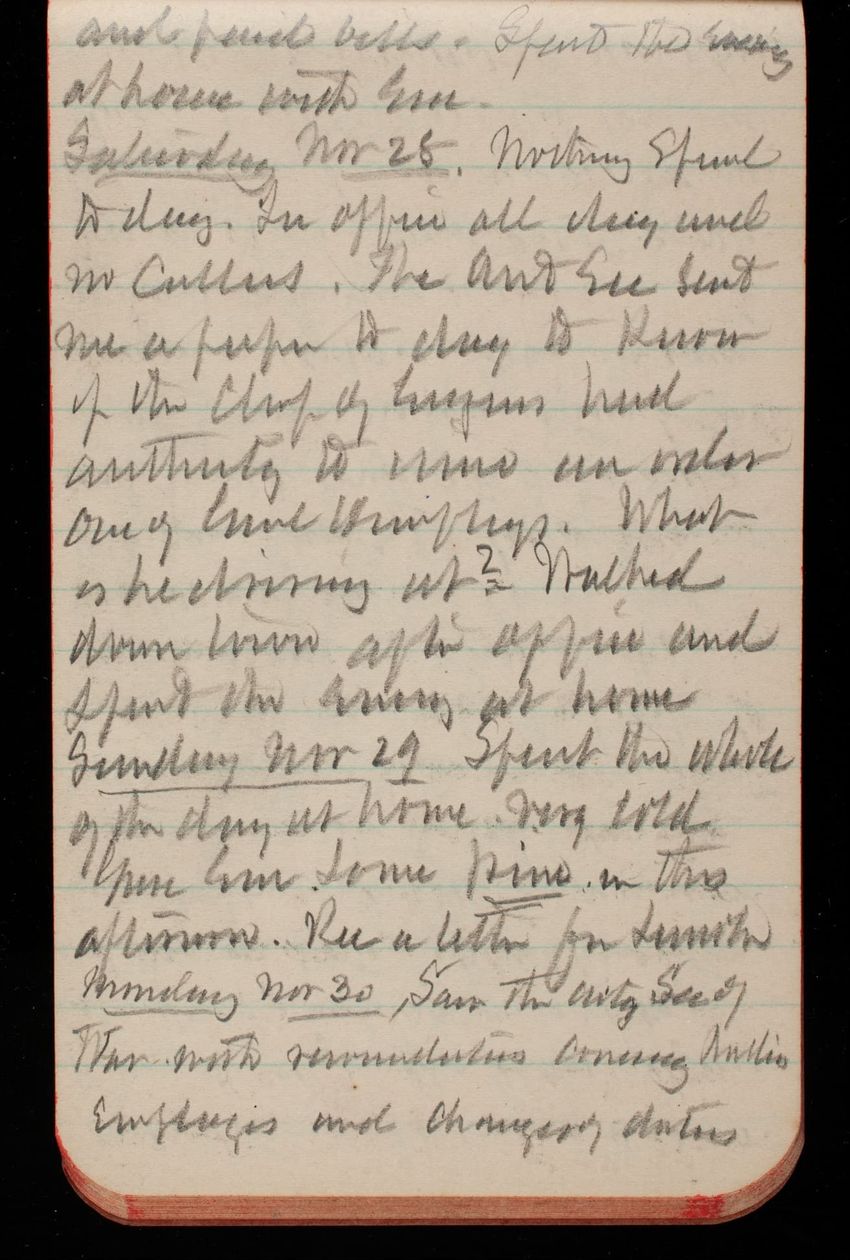 and paid bills. Spent the evening
at home with Em.
Saturday Nov 28. Nothing special
to day. In office all day and
no Callers. The Asst Sec sent
me a paper to day to know
if the Chf of Engrs had
authority to issue an order
one of Genl Humphreys. What
is he driving at? Walked
down town after office and
spent the evening at home
Sunday Nov 29 Spent the whole
of the day at home. Very cold
Gave Em some wine in this
afternoon. Rec a letter fr
Monday Nov 30, Saw the actg Sec of
War with concerning
Employees and change of duties